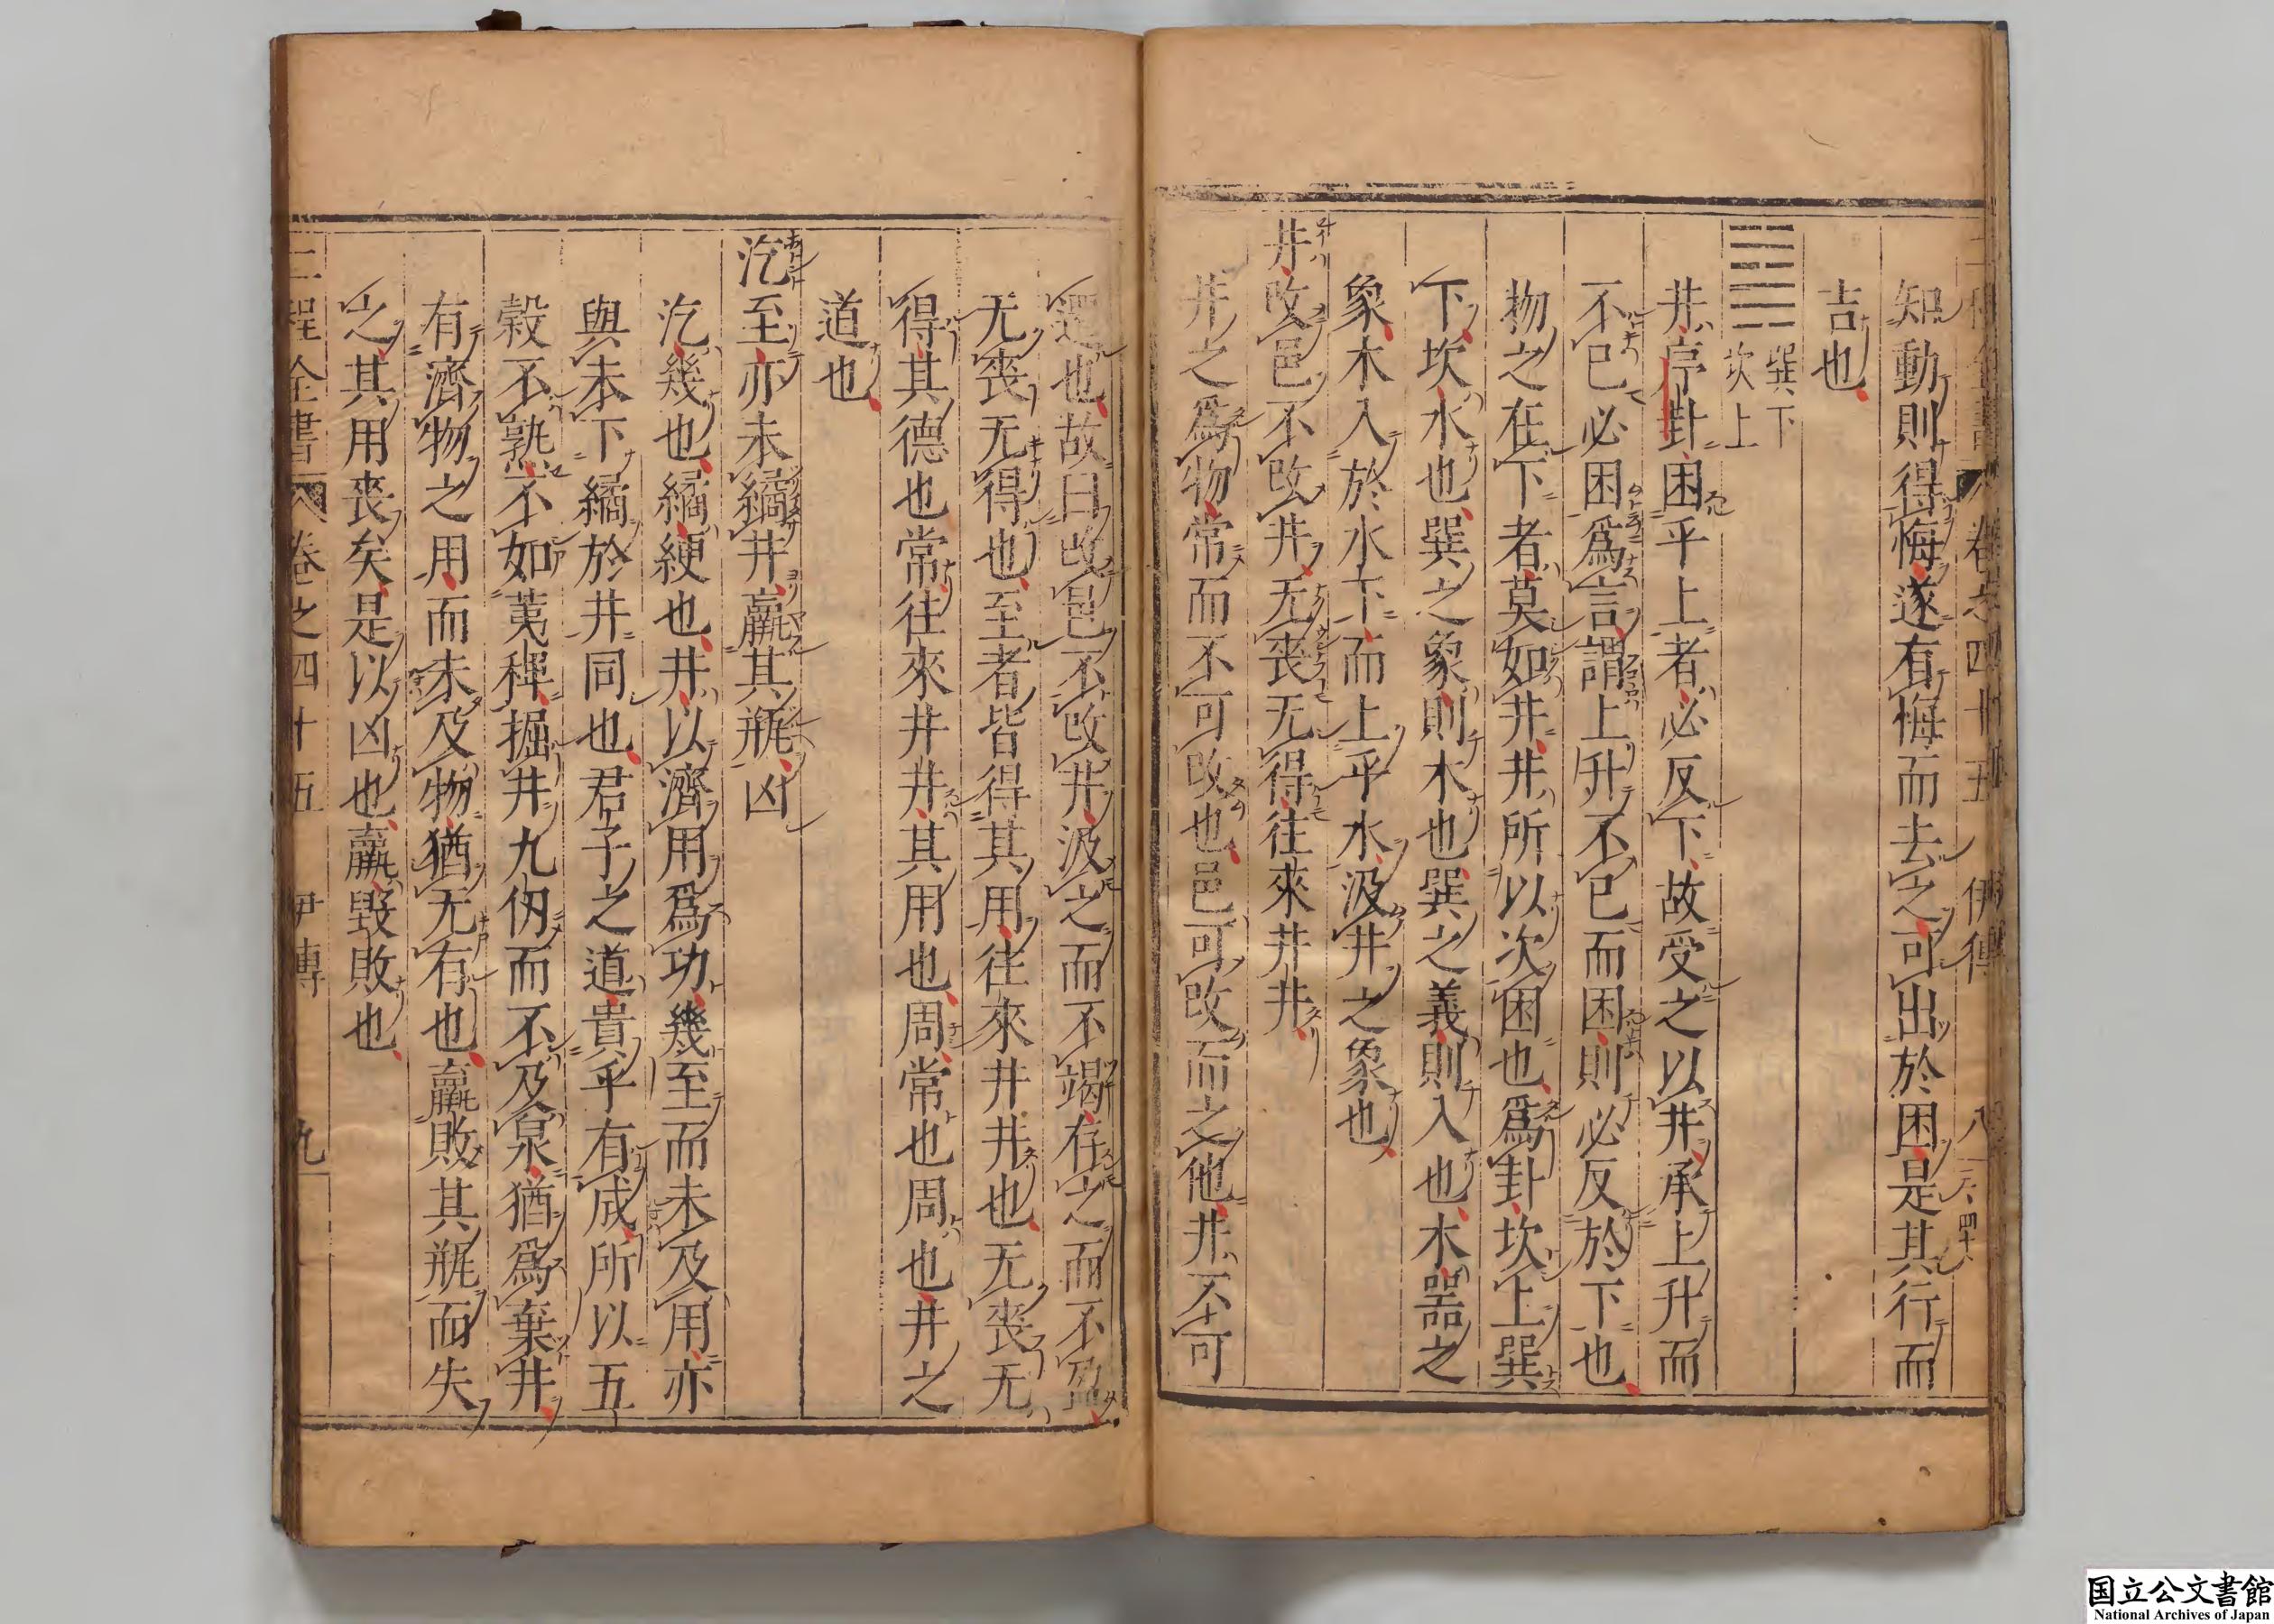 知動則得悔遂有悔而去之可出於困是其行而
吉也
巽下
坎上
井序卦困乎上者必反下故受之以井承上升而
不已必困爲言謂上升不已而困則必反於下也
物之在下者莫如井井所以次困也爲卦坎上巽
下坎水也巽之象則木也巽之義則入也木器之
象木入於水下而上乎水汲井之象也
井改邑不改井无喪无得往來井井
井之爲物常而不可改也邑可改而之他井不可
遷也故曰改邑不改井汲之而不竭存之而不盈
无喪无得也至者皆得其用往來井井也无喪无
得其德也常往來井井其用也周常也周也井之
道也
汔至亦未繘井羸其瓶凶
汔幾也繘綆也井以濟用爲功幾至而未及用亦
與未下繘於井同也君子之道貴乎有成所以五
穀不孰不如荑稗掘井九仞而不及泉猶爲棄井
有濟物之用而未及物猶无有也羸敗其瓶而失
之其用喪矣是以凶也羸毀敗也
二程全書 卷之四十五 伊傳 九
国立公文書館
National Archives of Japan